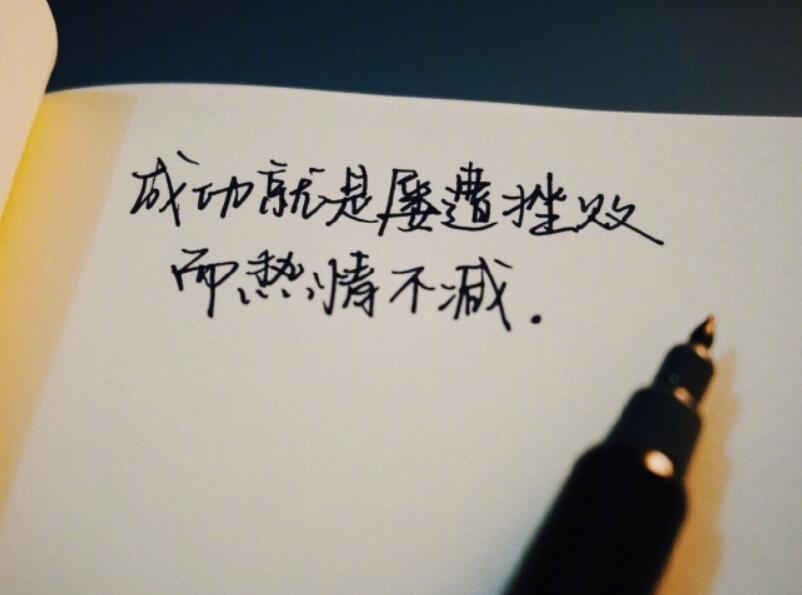 成功就是屡遭挫败
而热情不减.